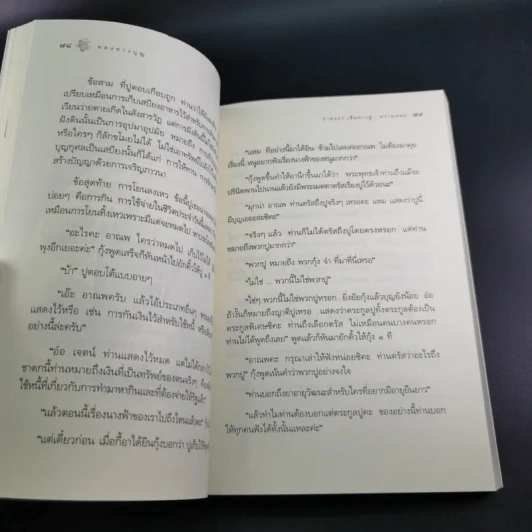 ๗๘ แสงดาวบุญ
ข้อสาม ที่ปูตอบเกือบถูก ท่านว่าได้
เปรียบเหมือนการเก็บเสบียงอาหารไว้สำหรับการ
เวียนว่ายตายเกิดในสังสารวัฏ แต่การฝังดิน
ฝังดินนั้นเป็นการอุปมาอุปมัย หมายถึง
หรือใครๆ ก็ลักขโมยไม่ได้ ไม่ใช่เอาทรัพย์ไปฝังไว้
บุญกุศลเป็นเสบียงนั้นก็ได้แก่ การให้ทาน การรักษา
สร้างปัญญาด้วยการเจริญภาวนา
ข้อสุดท้าย การโยนลงเหว ข้อนี้ปู
บ่อยๆ คือการกิน การใช้จ่ายในชีวิตประจำวันนี้
เหมือนการโยนทิ้งเหวเพราะมีแต่จะหมดไป
“อะไรคะ อาณพ ใครว่าหมดไป เก็บไว้
พุงอีกเยอะค่ะ” กุ้งพูดเสร็จก็หันหน้าไปยักคิ้วให้ ๑ ที
“บ้า” ปูตอบโต้แบบอายๆ
“เอ๊ะ อาณพครับ แล้วไอ้ประเภทอื่นๆ
แสดงไว้หรือ เช่น การกันเงินไว้สำหรับใช้หนี้ หรือ
อย่างนี้ล่ะครับ”
“อ๋อ เจตน์ ท่านแสดงไว้หมด แต่ไม่ได้
ชาดกนี้ท่านหมายถึงเงินที่เป็นทรัพย์ของตนจริงๆ
ใช้หนี้ที่เกี่ยวกับการทำมาหากินและที่ต้องจ่ายให้
“แล้วตอนนี้เรื่องนางฟ้าของเราไปถึงไหนแล้วคะ”
“แต่เดี๋ยวก่อน เมื่อกี้อาได้ยินกุ้งบอกว่า ปูเก็บไว้ที่พุง
๗๙
“แหม ทีอย่างนี้มาได้ยิน ข้ามไปเลยค่ะอาณพ ไม่ต้องมาคุย
เรื่องนี้ หนูอยากฟังเรื่องนางฟ้าของหนูมากกว่า”
“กุ้งพูดขึ้นทำให้อานึกขึ้นมาได้ว่า พระพุทธเจ้าท่านถึงแม้จะ
ปรินิพพานไปนานแล้วยังมีพระเมตตาตรัสเรื่องปูไว้ด้วยนะ”
“มุกน่า อาณพ ท่านตรัสถึงปูจริงๆ เหรอคะ แหม แสดงว่าปูนี่
มีบุญเยอะเลยซิคะ”
“จริงๆ แล้ว ท่านก็ไม่ได้ตรัสถึงปูโดยตรงหรอก แต่ท่าน
หมายถึงพวกปูมากกว่า”
“พวกปู หมายถึง พวกกุ้ง จ๋า ที่มาที่นี่เหรอ”
“ไม่ใช่ ... พวกนี้ไม่ใช่พวกปู”
“ใช่ๆ พวกนี้ไม่ใช่พวกปูหรอก ยิ่งยัยกุ้งแล้วบุญยังน้อย อ๋อ
ถ้างั้นก็หมายถึงญาติปูเหรอ แสดงว่าตระกูลปูทั้งตระกูลต้องเป็น
ตระกูลพิเศษซิคะ ท่านถึงเลือกตรัส ไม่เหมือนคนบางคนหรอก
ท่านไม่ได้พูดถึงเลย” พูดแล้วก็หันมายักคิ้วให้กุ้ง ๑ ที
“อาณพคะ กรุณาเล่าให้ฟังหน่อยซิคะ ท่านตรัสว่าอะไรถึง
พวกปู” กุ้งพูดเน้นคำว่าพวกปูอย่างจงใจ
“ท่านบอกถึงยาอายุวัฒนะสำหรับใครที่อยากมีอายุยืนยาว”
“แล้วทำไมท่านต้องบอกแต่ตระกูลปูคะ ของอย่างนี้ท่านบอก
ให้ทุกคนฟังได้ทั้งนั้นแหละค่ะ”